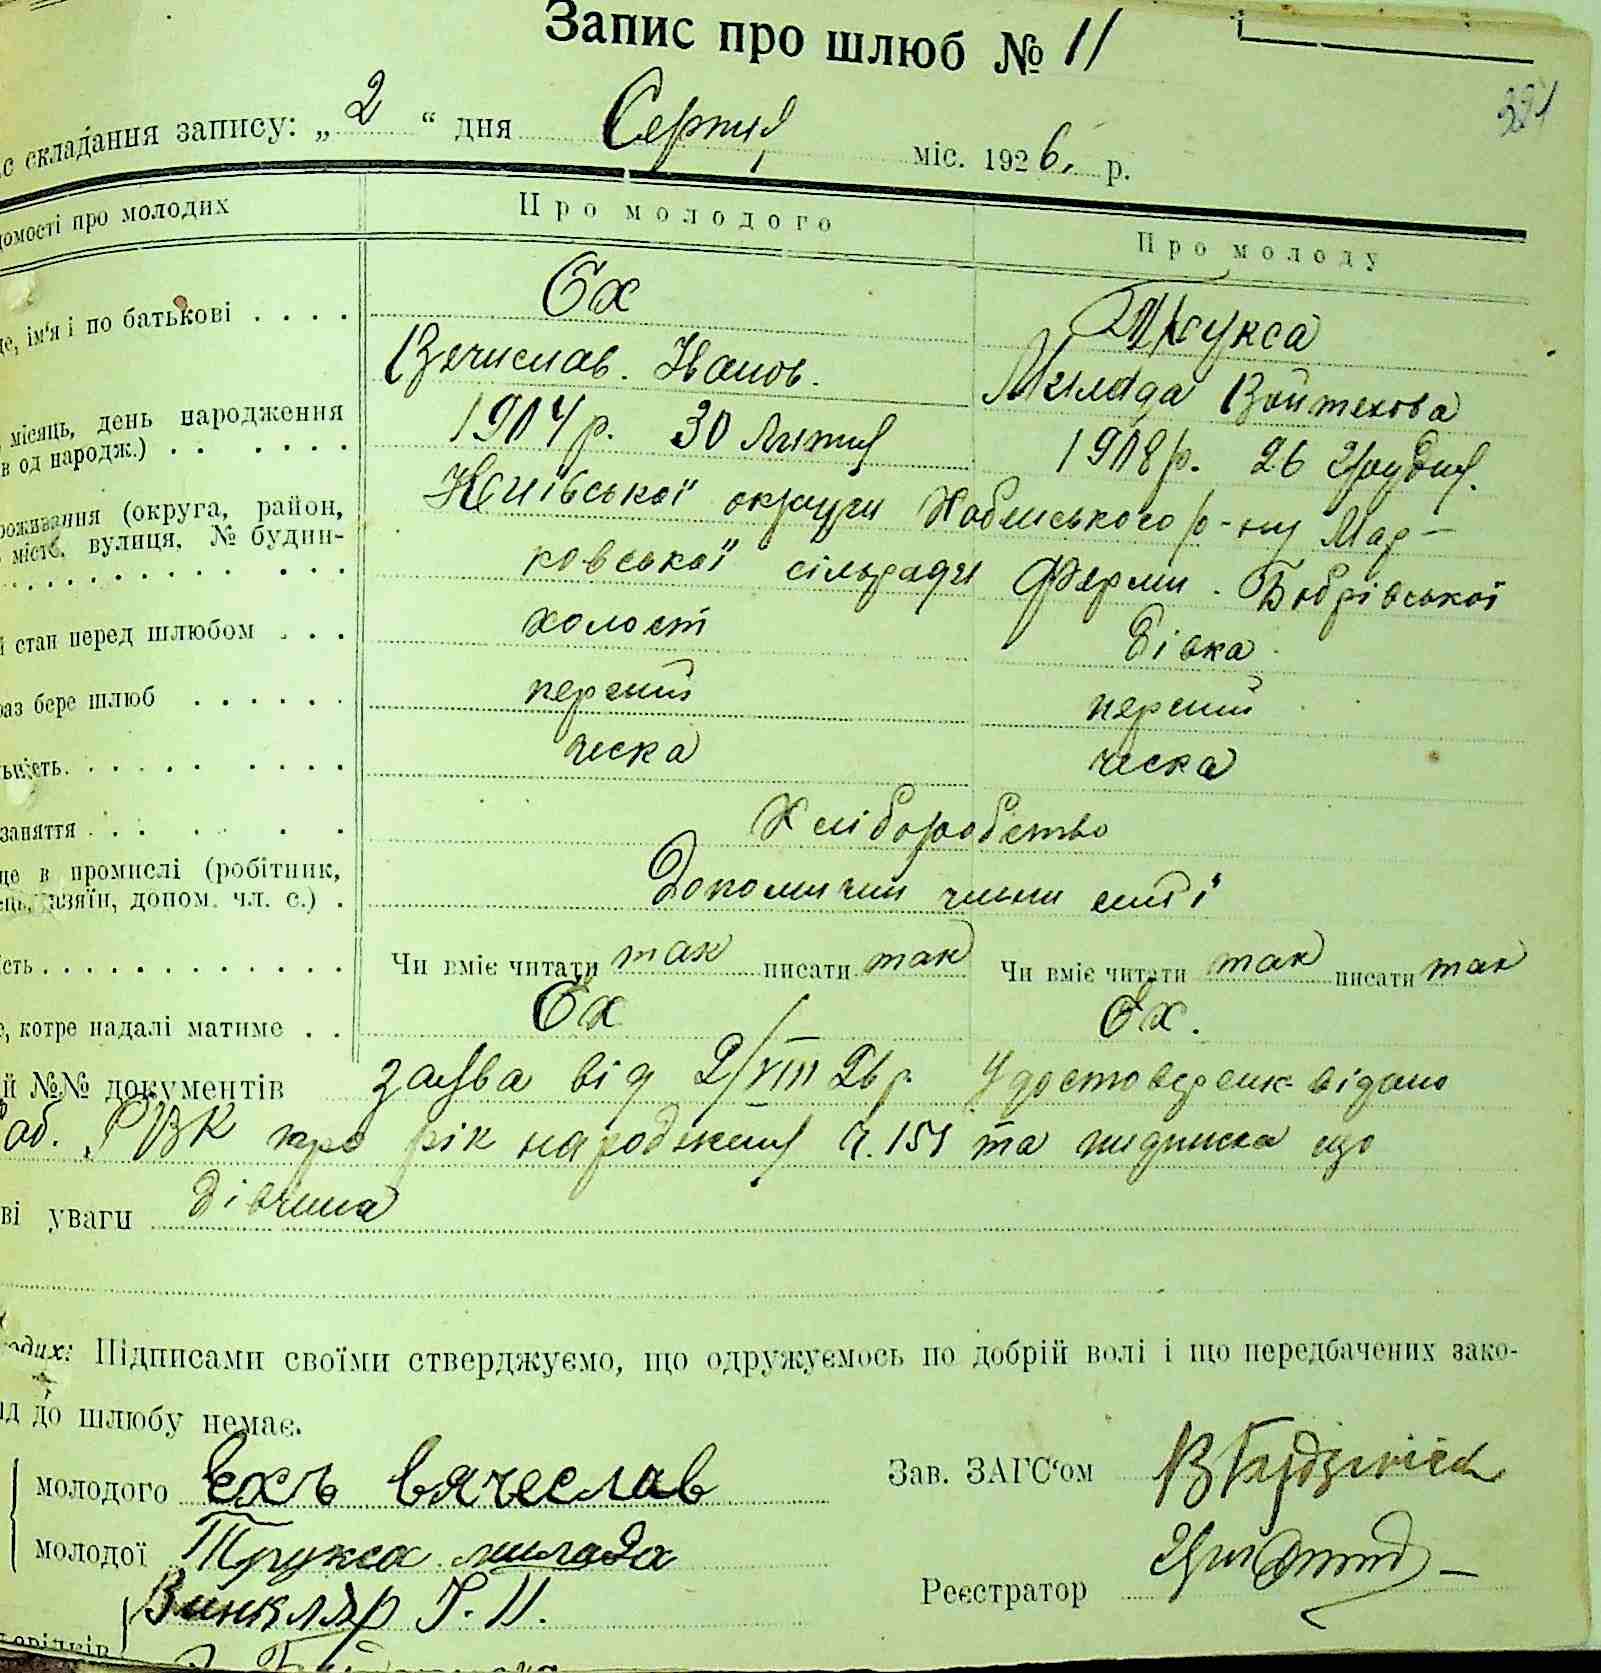 Запис про шлюб № 11
321
с складання запису: „ 2 “ дня Серпня міс. 1926. р.
домості про молодих Про молодого Про молоду
це, ім'я і по батькові . . . . Єх Трукса
Вячислав. Іванов. Милада Войтехова
місяць, день народження 1904 р. 30 Липня 1908 р. 26 Грудня.
в од народж.) . . . . . .
роживання (округа, район, Київської округи Хабенського р-ну Мар-
місто, вулиця, № будин- ковської сільради Ферми. Бобрівської
й стан перед шлюбом . . . холост дівка
раз бере шлюб . . . . . . перший перший
ьність. . . . . . . . . . ческа ческа
заняття . . . . . . Хліборобство
ще в промислі (робітник, Допомічни члени сим'ї
ець, хазяїн, допом. чл. с.) .
ість . . . . . . . . . . . . . Чи вміє читати так писати так Чи вміє читати так писати так
е, котре надалі матиме . . Єх Єх.
й №№ документів заява від 2/VIII 26 р. Удостоверенє відано
аб. РВК про рік народження Ч. 151 та пидписка що
ві уваги дівчина
одих: Підписами своїми стверджуємо, що одружуємось по добрій волі і що передбачених зако-
ад до шлюбу немає.
молодого Ехъ Вячеслав Зав. ЗАГС'ом
молодої Трукса милада
Винкляр Реєстратор